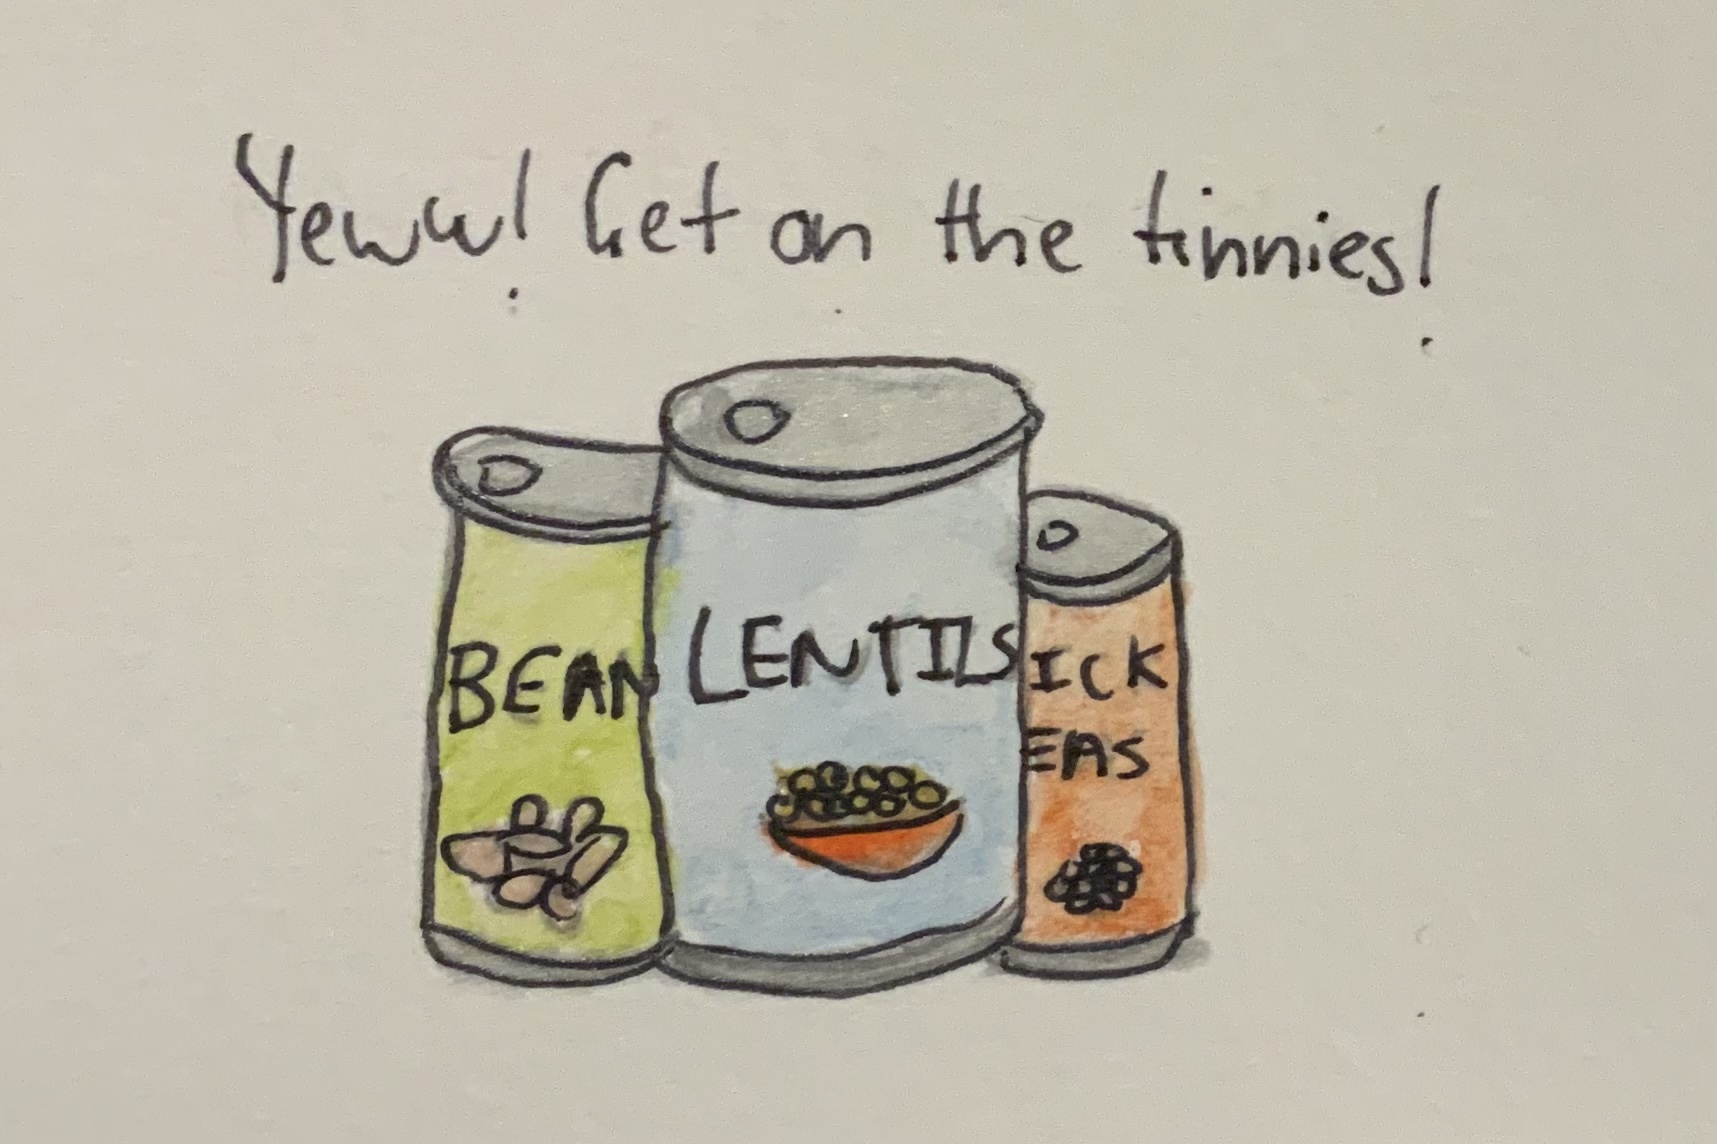 Yeww! Get on the tinnies!
BEAN
LENTILS
ICK
EAS